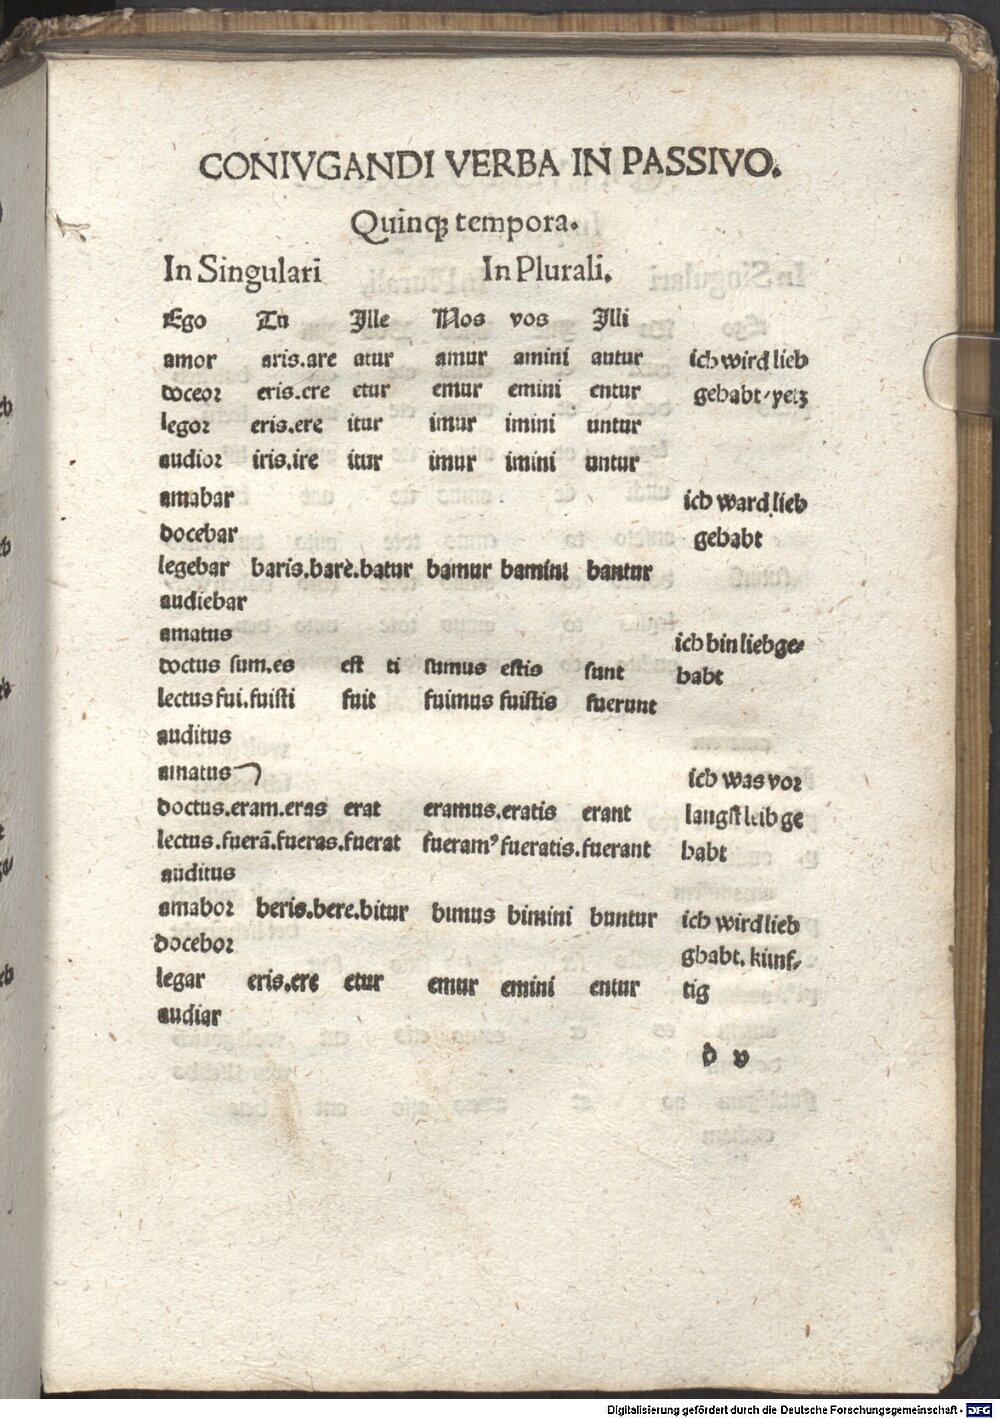 CONIVGANDI VERBA IN PASSIVO.
Quinqꝫ tempora.
In Singulari In Plurali.
Ego Tu Ille Nos vos Illi
amor aris.are atur amur amini antur ich wird lieb
doceor eris.ere etur emur emini entur gehabt/yetz
legor eris.ere itur imur imini untur
audior iris.ire itur imur imini untur
amabar ich ward lieb
docebar gehabt
legebar baris.barè.batur bamur bamini bantur
audiebar
amatus ich bin liebge⸗
doctus sum.es est ti sumus estis sunt habt
lectus fui.fuisti fuit fuimus fuistis fuerunt
auditus
amatus ich was vor
doctus.eram.eras erat eramus.eratis erant langst leib ge
lectus.fuerā.fueras.fuerat fueramꝰ fueratis.fuerant habt
auditus
amabor beris.bere.bitur bimus bimini buntur ich wird lieb
docebor ghabt. künf⸗
legar eris.ere etur emur emini entur tig
audiar
d v
Digitalisierung gefördert durch die Deutsche Forschungsgemeinschaft - DFG